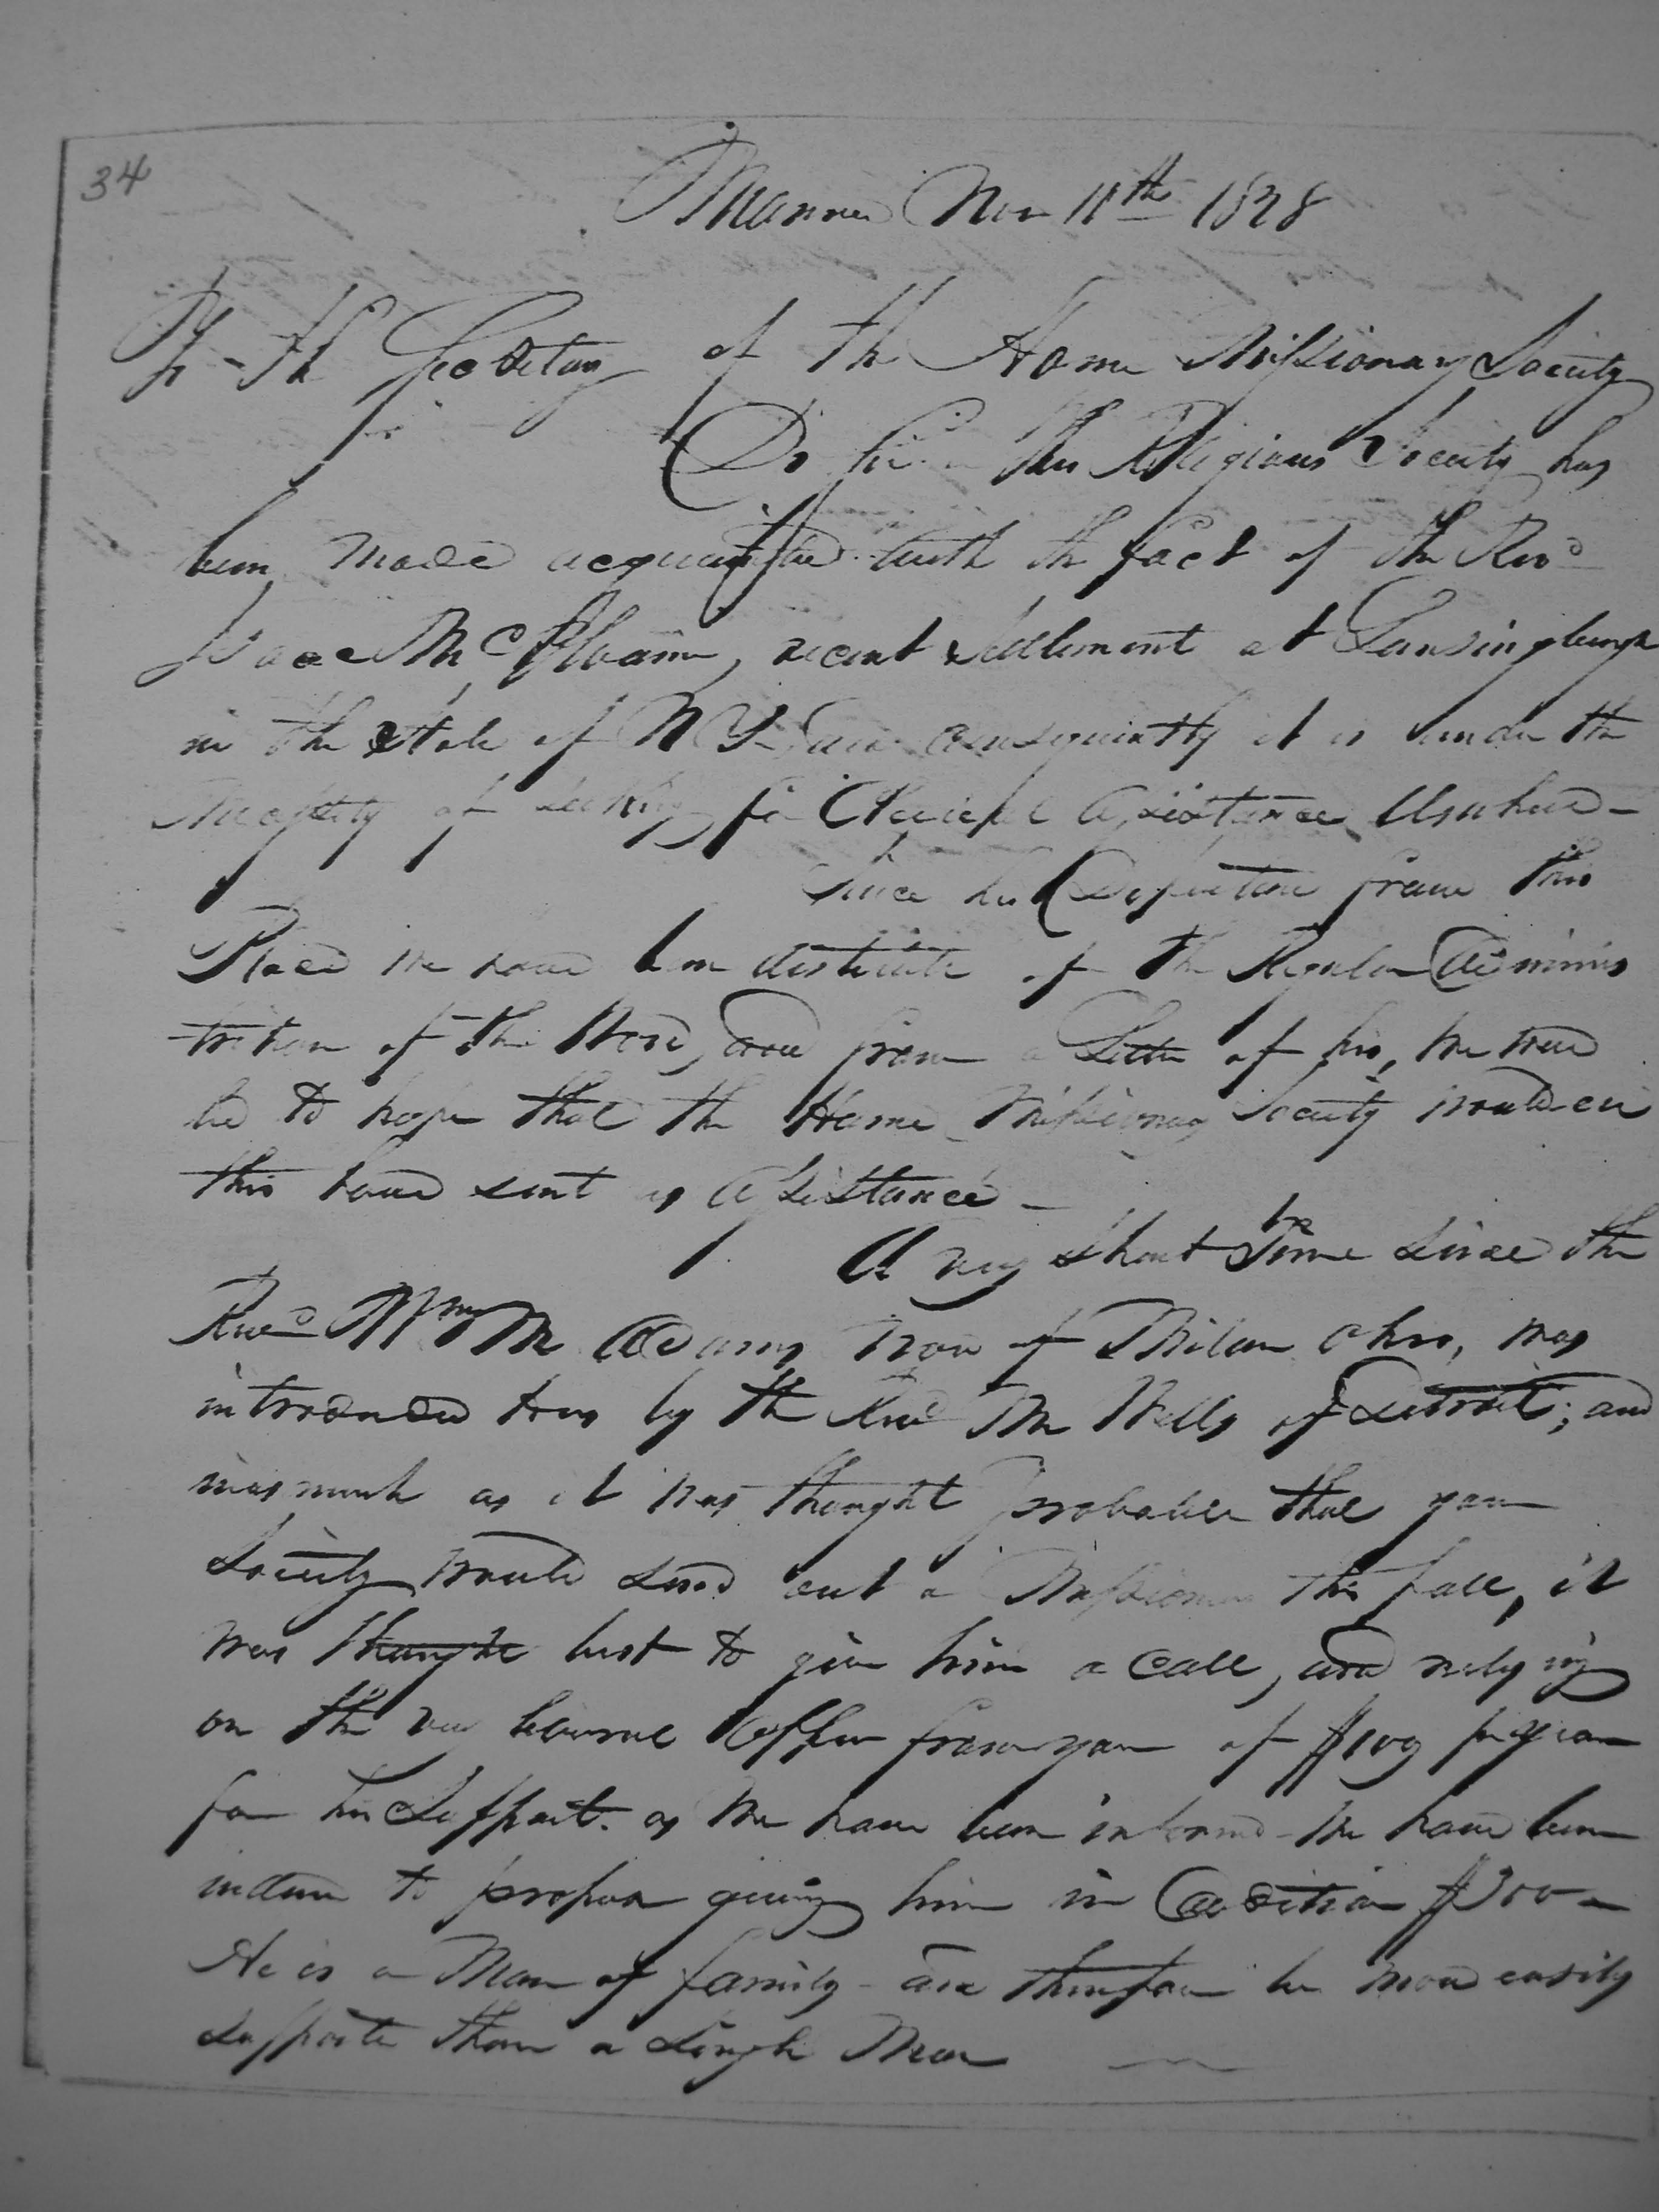 34
Monroe Nov 11th 1828
To the Secretary of the Home Missionary Society
Dr Sir The Religious Society has
been made acquainted with the fact of the Revd
Isaac McIlvaine, recent settlement at Lansingburgh
in the State of NY and consequently it is under the
necessity of seeking for Clerical assistance elsewhere -
Since his Departure from this
Place we have been destitute of the Regular Adminis
-tration of the Word, and from a Letter of his, we were
led to hope that the Home Missionary Society would ere
this have sent us Assistance -
A very short time since the
Revd Wm M Adams now of Milan Ohio, was
introduced to us by the Revd Mr Wells of Detroit; and
inasmuch as it was thought probable that your
Society would send out a Missionary this fall, it
was thought best to give him a call, and relying
on the very liberal offer from you of $100 pr year
for his Support. as we have been informd - We have been
induced to propose giving him in addition $300 -
He is a Man of family - and therefore be more easily
supported than a single Man